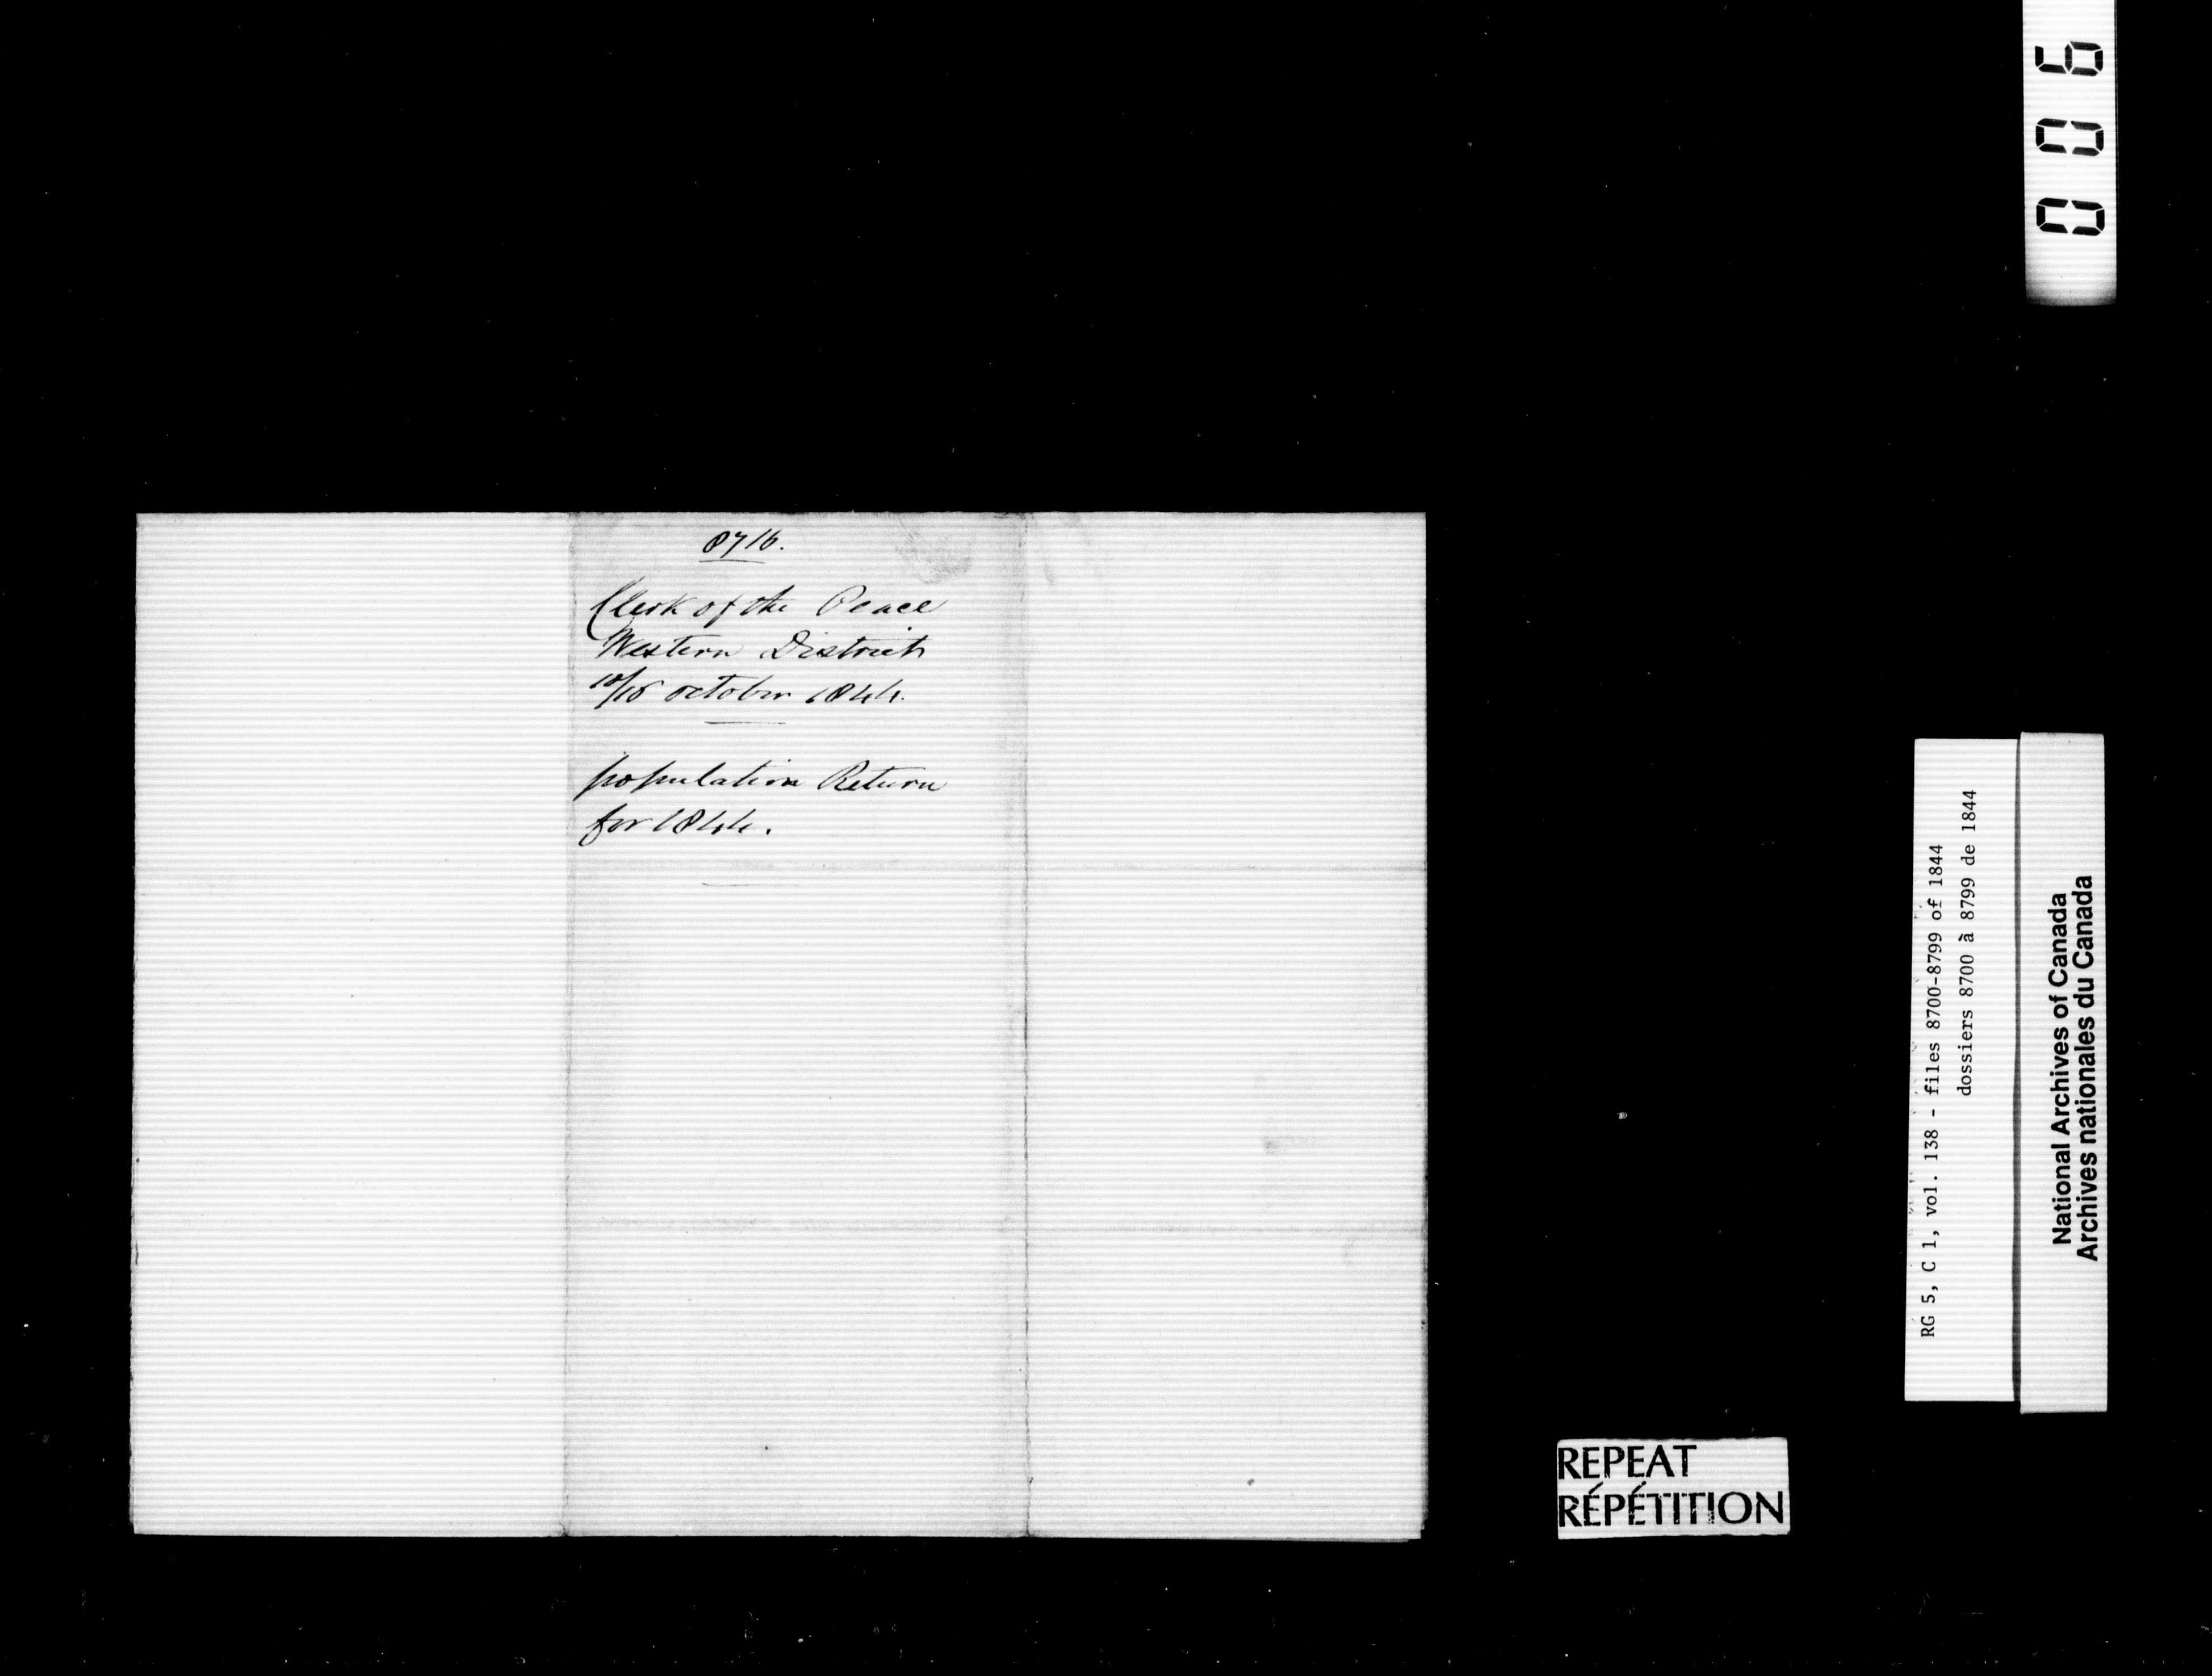 8716.
Clerk of the Peace
Western District
10/16 October 1844.
population Return
for 1844.
006
RG 5, C 1, vol. 138 - files 8700-8799 of 1844
dossiers 8700 à 8799 de 1844
National Archives of Canada
Archives nationales du Canada
REPEAT
RÉPÉTITION